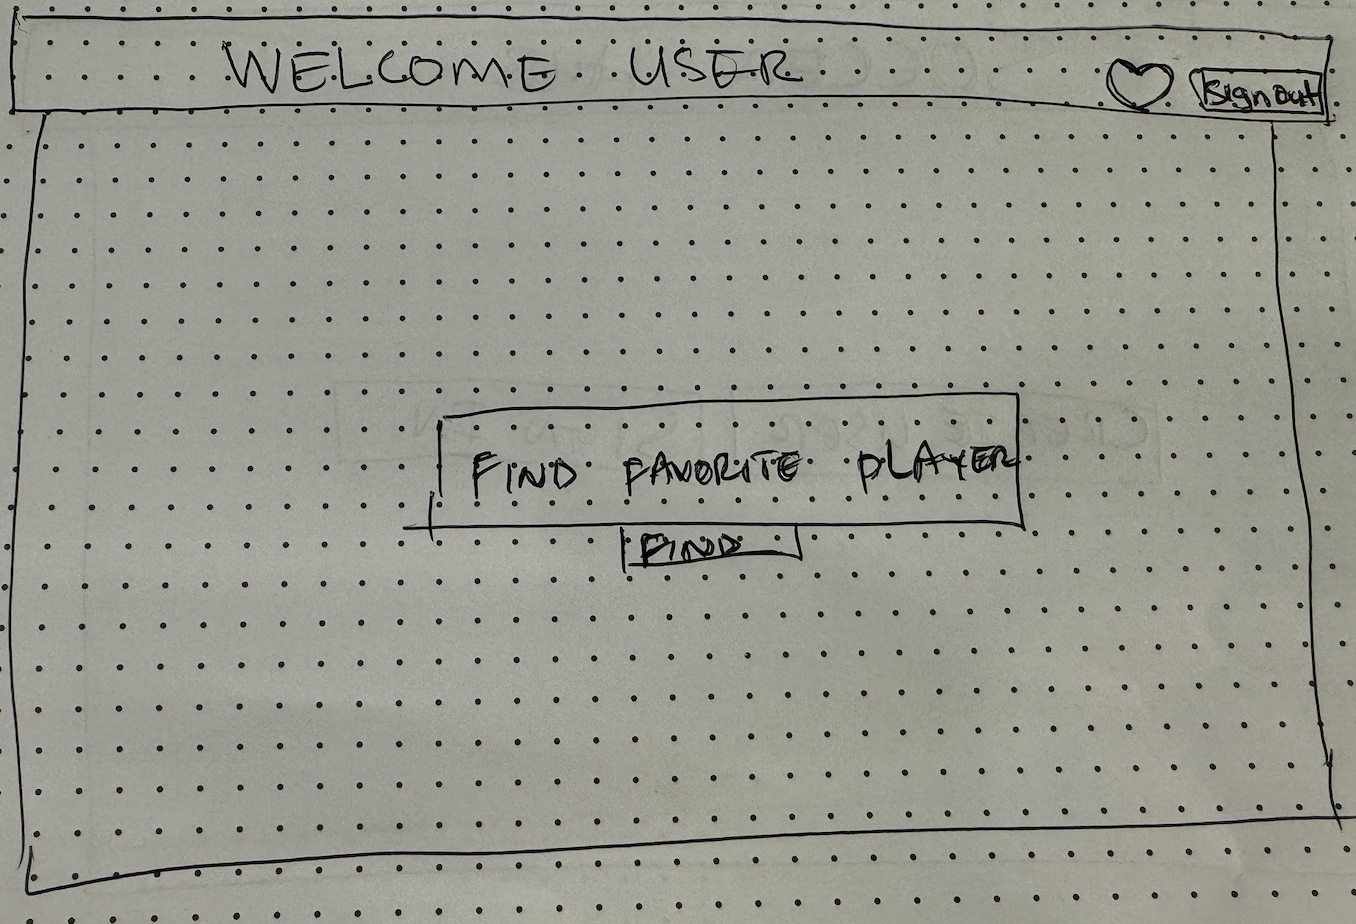 WELCOME USER
Sign out
FIND FAVORITE PLAYER
FIND